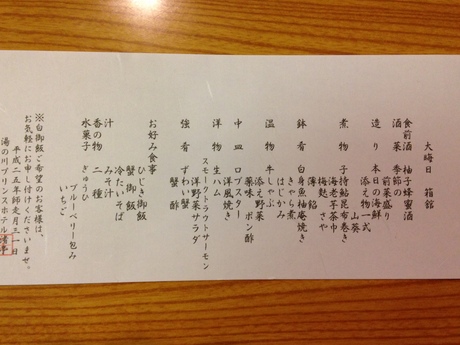 大晦日　箱館
食前酒　柚子蜂蜜酒
酒菜　季節の前菜盛り
造り　本日の海鮮
添え物一式
山葵
煮物　子持鮎昆布巻き
海老芋茶巾
梅麩　さや
薄餡
鉢肴　白身魚柚庵焼き
きゃら煮
はじかみ
温物　牛しゃぶ
添え野菜
薬味　ポン酢
中皿　ロブスター
洋風焼き
洋物　生ハム
スモークトラウトサーモン
洋野菜サラダ
強肴　ずわい蟹
蟹酢
お好み食事
ひじき御飯
蟹御飯
冷たいそば
汁　みそ汁
香の物　二種
水菓子　ぎゅうひ
ブルーベリー包み
いちご
※白御飯ご希望のお客様は、
お気軽にお申し付けくださいませ。
平成二五年師走月三一日
湯の川プリンスホテル渚亭